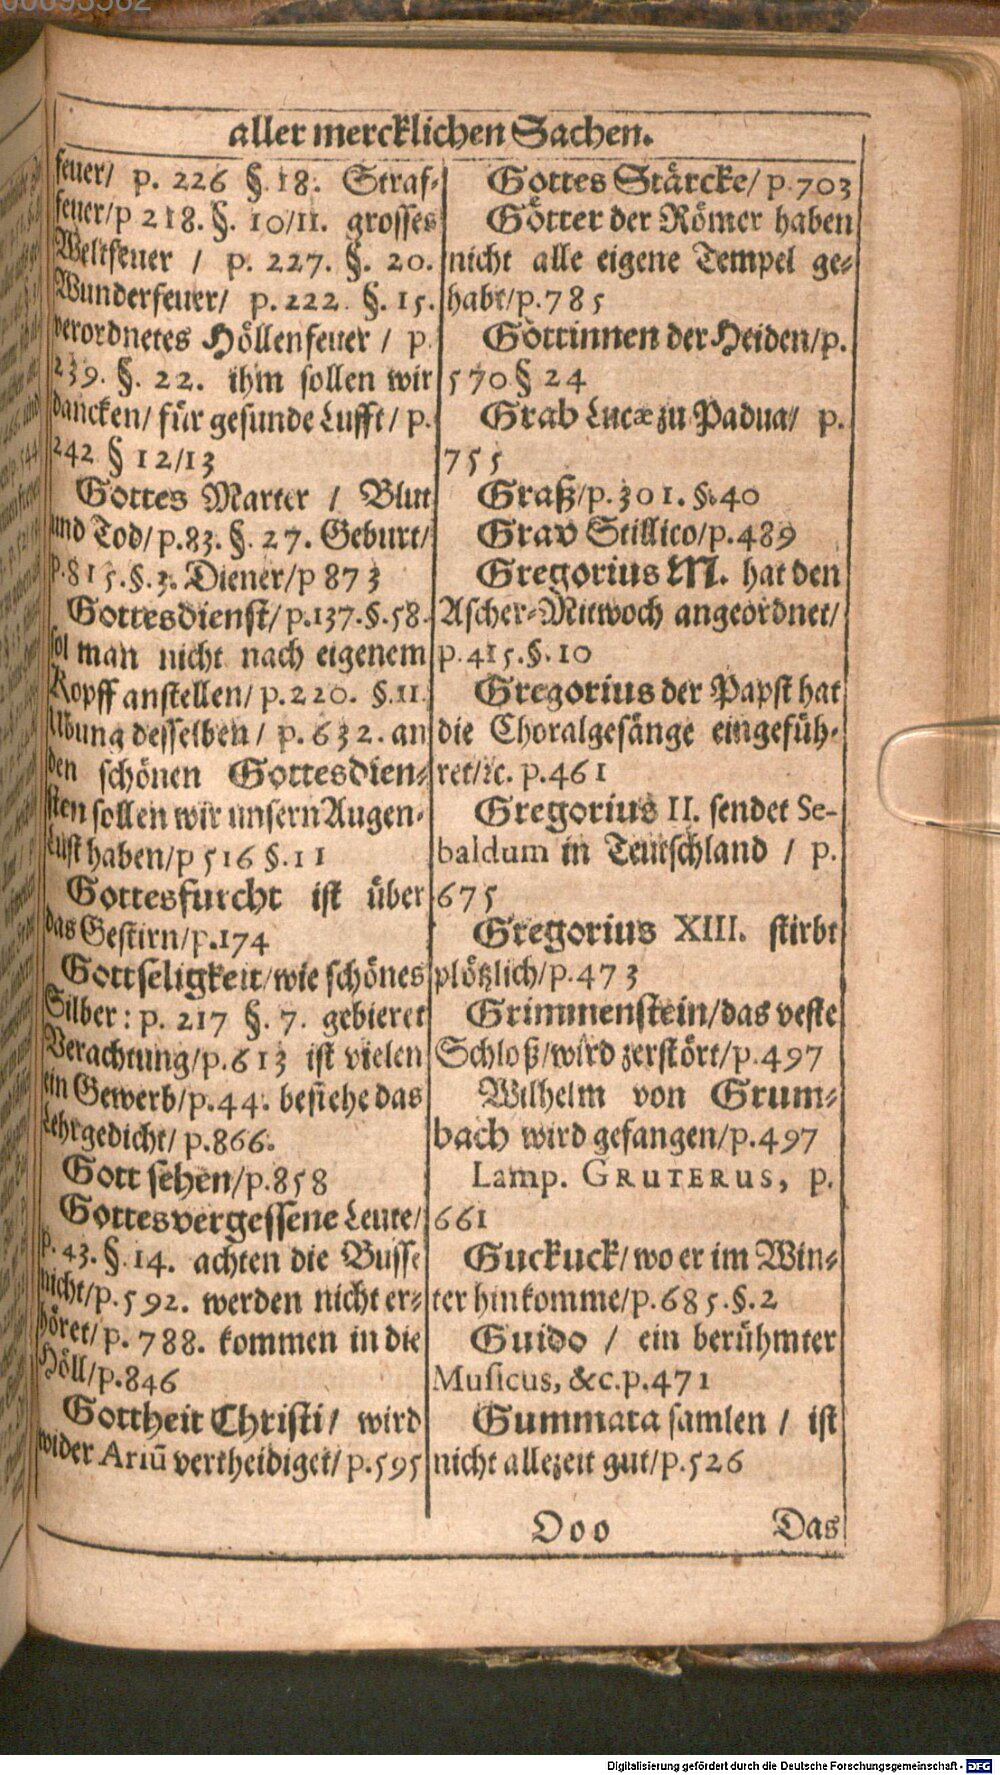 00093562
aller mercklichen Sachen.
feuer/ p. 226 §. 18. Straf-
feuer/p 218. §. 10/11. grosses
Weltfeuer / p. 227. §. 20.
Wunderfeuer/ p. 222. §. 15.
verordnetes Höllenfeuer / p.
239. §. 22. ihm sollen wir
dancken/ für gesunde Lufft/ p.
242 § 12/13
Gottes Marter / Blut
und Tod/p.83. §. 27. Geburt/
p.815.§.3. Diener/p 873
Gottesdienst/p.137.§.58.
sol man nicht nach eigenem
Kopff anstellen/ p.220. §.11.
Ubung desselben/ p.632. an
den schönen Gottesdien-
sten sollen wir unsern Augen-
lust haben/p 516 §.11
Gottesfurcht ist über
das Gestirn/p.174
Gottseligkeit/wie schönes
Silber: p. 217 §. 7. gebieret
Verachtung/p.613 ist vielen
ein Gewerb/p.44. besiehe das
Lehrgedicht/ p.866.
Gott sehen/p.858
Gottesvergessene Leute/
p. 43. §. 14. achten die Busse
nicht/p.592. werden nicht er-
höret/p. 788. kommen in die
Höll/p.846
Gottheit Christi/ wird
wider Ariū vertheidiget/p.595
Gottes Stärcke/ p.703
Götter der Römer haben
nicht alle eigene Tempel ge-
habt/p.785
Göttinnen der Heiden/p.
570 § 24
Grab Lucæ zu Padua/ p.
755
Graß/p.301. §.40
Grav Stillico/p.489
Gregorius M. hat den
Ascher-Mitwoch angeordnet/
p.415.§.10
Gregorius der Papst hat
die Choralgesänge eingefüh-
ret/ꝛc. p.461
Gregorius II. sendet Se-
baldum in Teutschland / p.
675
Gregorius XIII. stirbt
plötzlich/p.473
Grimmenstein/das veste
Schloß/wird zerstört/p.497
Wilhelm von Grum-
bach wird gefangen/p.497
Lamp. GRUTERUS, p.
661
Guckuck/wo er im Win-
ter hinkomme/p.685.§.2
Guido / ein berühmter
Musicus, &c.p.471
Gummata samlen / ist
nicht allezeit gut/p.526
Ooo Das
Digitalisierung gefördert durch die Deutsche Forschungsgemeinschaft - DFG